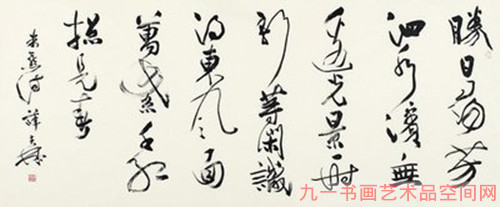 勝日尋芳
泗水濱無
邊光景一時
新等閑識
得東風面
萬紫千紅
總是春
朱熹詩
九一书画艺术品空间网